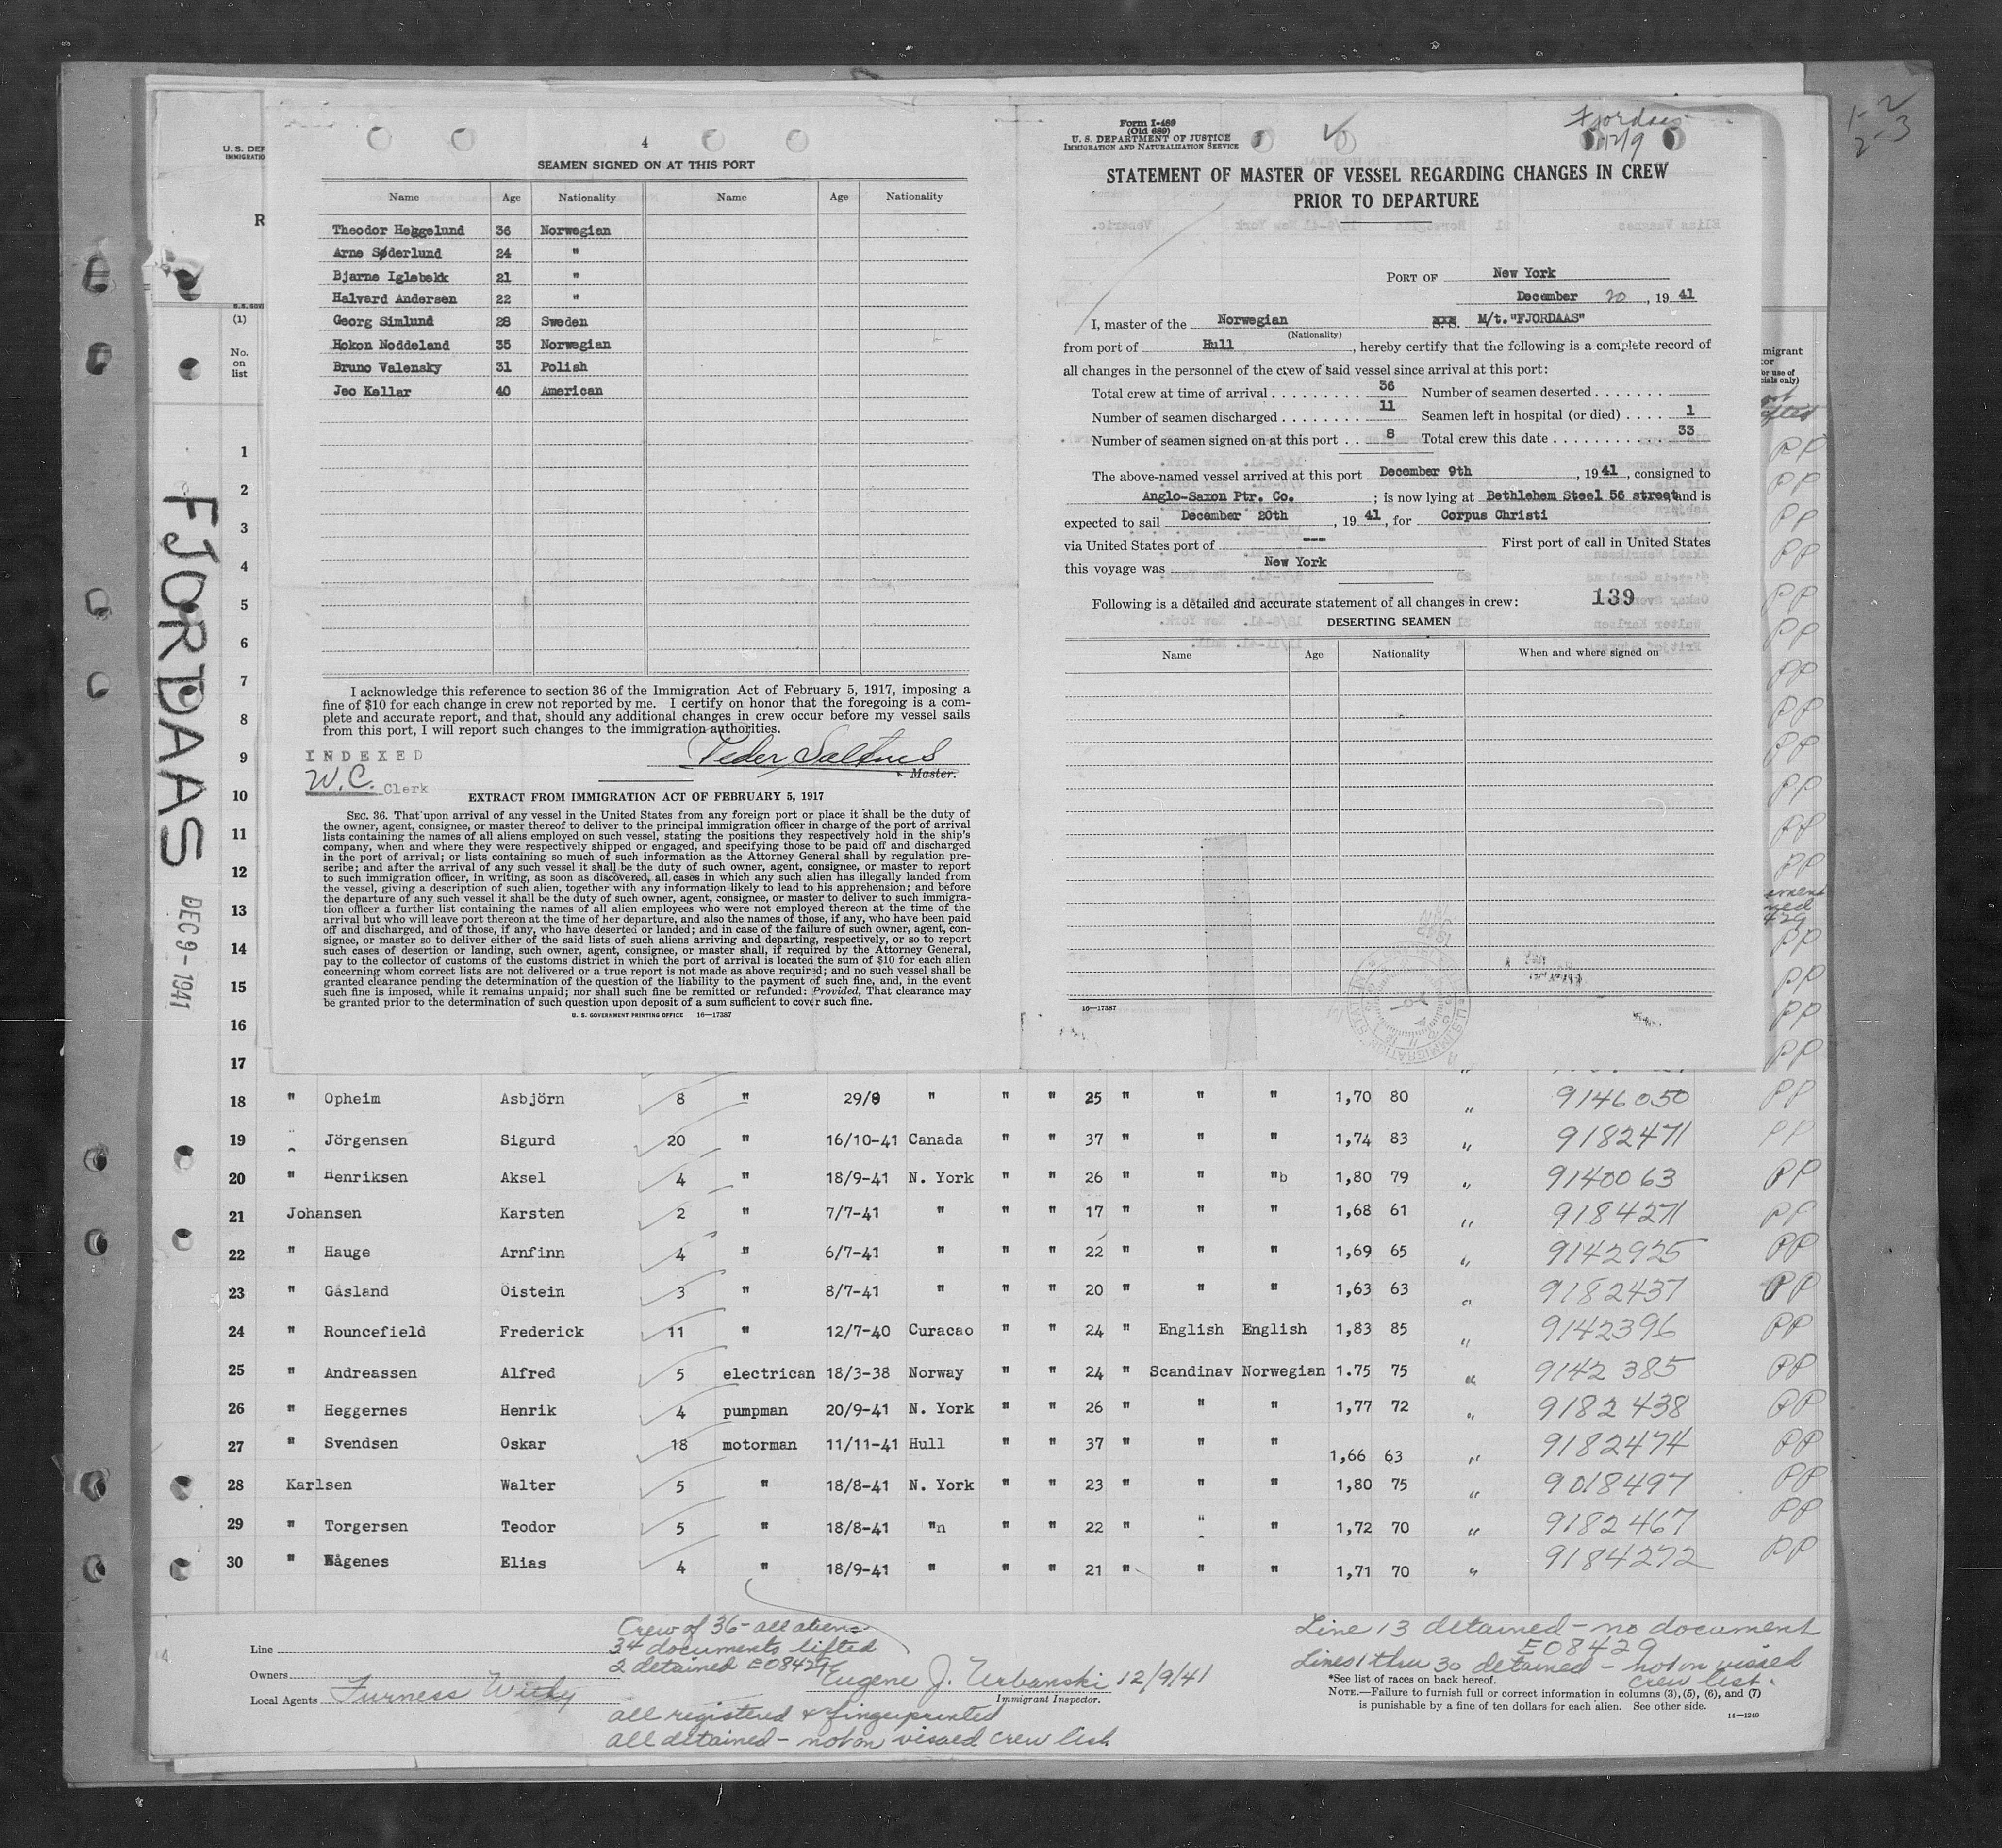 4
SEAMEN SIGNED ON AT THIS PORT
Name Age Nationality Name Age Nationality
Theodor Heggelund 36 Norwegian
Arne Søderlund 24 "
Bjarne Iglebekk 21 "
Halvard Andersen 22 "
Georg Simlund 28 Sweden
Hokon Noddeland 35 Norwegian
Bruno Valensky 31 Polish
Jeo Kellar 40 American
I acknowledge this reference to section 36 of the Immigration Act of February 5, 1917, imposing a
fine of $10 for each change in crew not reported by me. I certify on honor that the foregoing is a com-
plete and accurate report, and that, should any additional changes in crew occur before my vessel sails
from this port, I will report such changes to the immigration authorities.
INDEXED
W.C. Clerk
Peder Saltnes
Master.
EXTRACT FROM IMMIGRATION ACT OF FEBRUARY 5, 1917
SEC. 36. That upon arrival of any vessel in the United States from any foreign port or place it shall be the duty of
the owner, agent, consignee, or master thereof to deliver to the principal immigration officer in charge of the port of arrival
lists containing the names of all aliens employed on such vessel, stating the positions they respectively hold in the ship's
company, when and where they were respectively shipped or engaged, and specifying those to be paid off and discharged
in the port of arrival; or lists containing so much of such information as the Attorney General shall by regulation pre-
scribe; and after the arrival of any such vessel it shall be the duty of such owner, agent, consignee, or master to report
to such immigration officer, in writing, as soon as discovered, all cases in which any such alien has illegally landed from
the vessel, giving a description of such alien, together with any information likely to lead to his apprehension; and before
the departure of any such vessel it shall be the duty of such owner, agent, consignee, or master to deliver to such immigra-
tion officer a further list containing the names of all alien employees who were not employed thereon at the time of the
arrival but who will leave port thereon at the time of her departure, and also the names of those, if any, who have been paid
off and discharged, and of those, if any, who have deserted or landed; and in case of the failure of such owner, agent, con-
signee, or master so to deliver either of the said lists of such aliens arriving and departing, respectively, or so to report
such cases of desertion or landing, such owner, agent, consignee, or master shall, if required by the Attorney General,
pay to the collector of customs of the customs district in which the port of arrival is located the sum of $10 for each alien
concerning whom correct lists are not delivered or a true report is not made as above required; and no such vessel shall be
granted clearance pending the determination of the question of the liability to the payment of such fine, and, in the event
such fine is imposed, while it remains unpaid; nor shall such fine be remitted or refunded: Provided, That clearance may
be granted prior to the determination of such question upon deposit of a sum sufficient to cover such fine.
U. S. GOVERNMENT PRINTING OFFICE 16—17387
Form I-489
(Old 689)
U. S. DEPARTMENT OF JUSTICE
IMMIGRATION AND NATURALIZATION SERVICE
Fjordaas
12/9
STATEMENT OF MASTER OF VESSEL REGARDING CHANGES IN CREW
PRIOR TO DEPARTURE
PORT OF New York
December 20, 1941
I, master of the Norwegian M/t."FJORDAAS"
(Nationality)
from port of Hull, hereby certify that the following is a complete record of
all changes in the personnel of the crew of said vessel since arrival at this port:
Total crew at time of arrival 36 Number of seamen deserted
Number of seamen discharged 11 Seamen left in hospital (or died) 1
Number of seamen signed on at this port 8 Total crew this date 33
The above-named vessel arrived at this port December 9th, 1941, consigned to
Anglo-Saxon Ptr. Co.; is now lying at Bethlehem Steel 56 street and is
expected to sail December 20th, 1941, for Corpus Christi
via United States port of --- First port of call in United States
this voyage was New York
Following is a detailed and accurate statement of all changes in crew: 139
DESERTING SEAMEN
Name Age Nationality When and where signed on
16—17387
1-2
2-3
U. S. DEP
IMMIGRATIO
R
(1)
No.
on
list
FJORDAAS
DEC 9-1941
1
2
3
4
5
6
7
8
9
10
11
12
13
14
15
16
17
18 " Opheim Asbjörn 8 " 29/8 " " " 25 " " " 1,70 80 " 9146050 PP
19 " Jörgensen Sigurd 20 " 16/10-41 Canada " " 37 " " " 1,74 83 " 9182471 PP
20 " Henriksen Aksel 4 " 18/9-41 N. York " " 26 " " "b 1,80 79 " 9140063 PP
21 Johansen Karsten 2 " 7/7-41 " " " 17 " " " 1,68 61 " 9184271 PP
22 " Hauge Arnfinn 4 " 6/7-41 " " " 22 " " " 1,69 65 " 9142925 PP
23 " Gåsland Öistein 3 " 8/7-41 " " " 20 " " " 1,63 63 " 9182437 PP
24 " Rouncefield Frederick 11 " 12/7-40 Curacao " " 24 " English English 1,83 85 " 9142396 PP
25 " Andreassen Alfred 5 electrican 18/3-38 Norway " " 24 " Scandinav Norwegian 1.75 75 " 9142385 PP
26 " Heggernes Henrik 4 pumpman 20/9-41 N. York " " 26 " " " 1,77 72 " 9182438 PP
27 " Svendsen Oskar 18 motorman 11/11-41 Hull " " 37 " " " 1,66 63 " 9182474 PP
28 Karlsen Walter 5 " 18/8-41 N. York " " 23 " " " 1,80 75 " 9018497 PP
29 " Torgersen Teodor 5 " 18/8-41 "n " " 22 " " " 1,72 70 " 9182467 PP
30 " Vågenes Elias 4 " 18/9-41 " " " 21 " " " 1,71 70 " 9184272 PP
Crew of 36 - all aliens
34 documents lifted
2 detained E08429
Line
Owners
Local Agents Furness Withy
Eugene J. Urbanski 12/9/41
Immigrant Inspector.
all registered & fingerprinted
all detained - not on visaed crew list
Line 13 detained - no document
E08429
Lines 1 thru 30 detained - not on visaed
crew list.
*See list of races on back hereof.
NOTE.—Failure to furnish full or correct information in columns (3), (5), (6), and (7)
is punishable by a fine of ten dollars for each alien. See other side.
14—1240